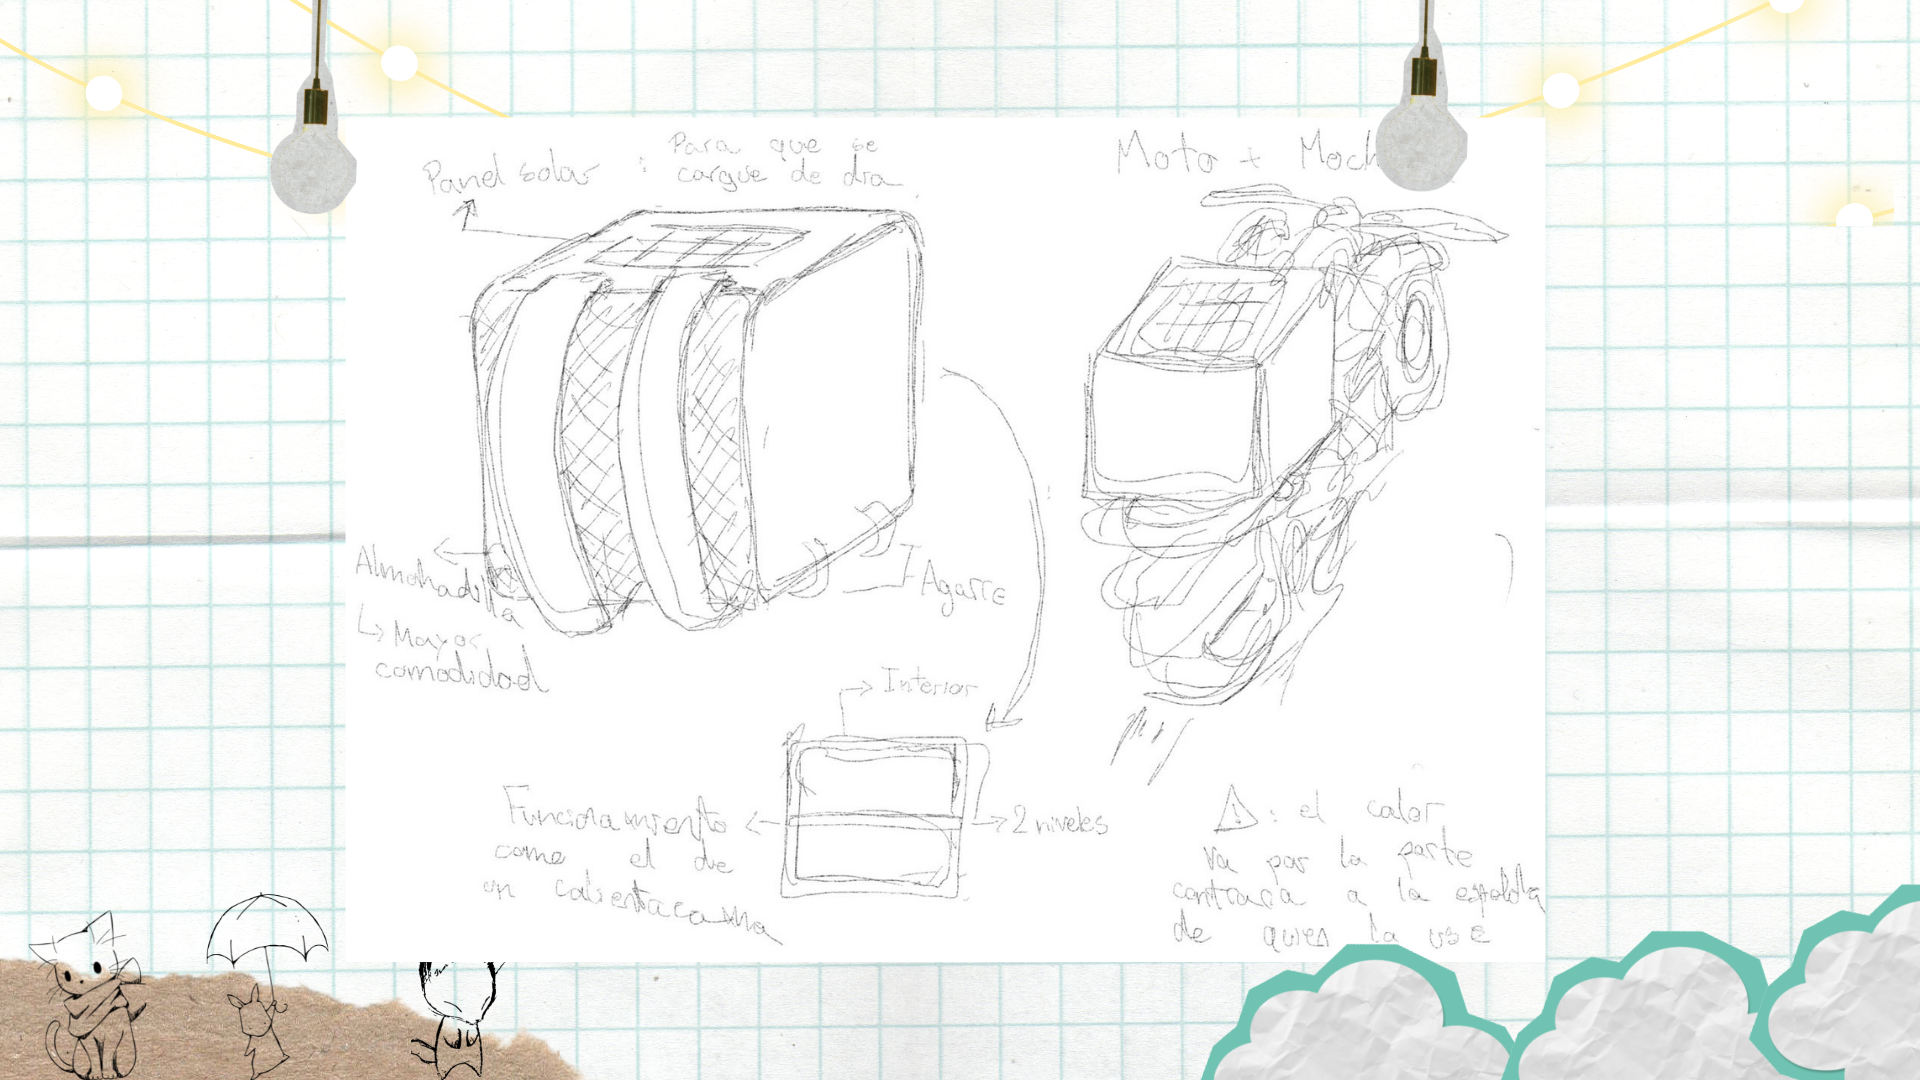 Panel solar :
Para que se
cargue de dia
Moto + Moch
Almohadilla
↳ Mayor
comodidad
Agarre
Interior
Funcionamiento
como el de
un calientacama
2 niveles
⚠: el calor
va por la parte
contraria a la espalda
de quien la use